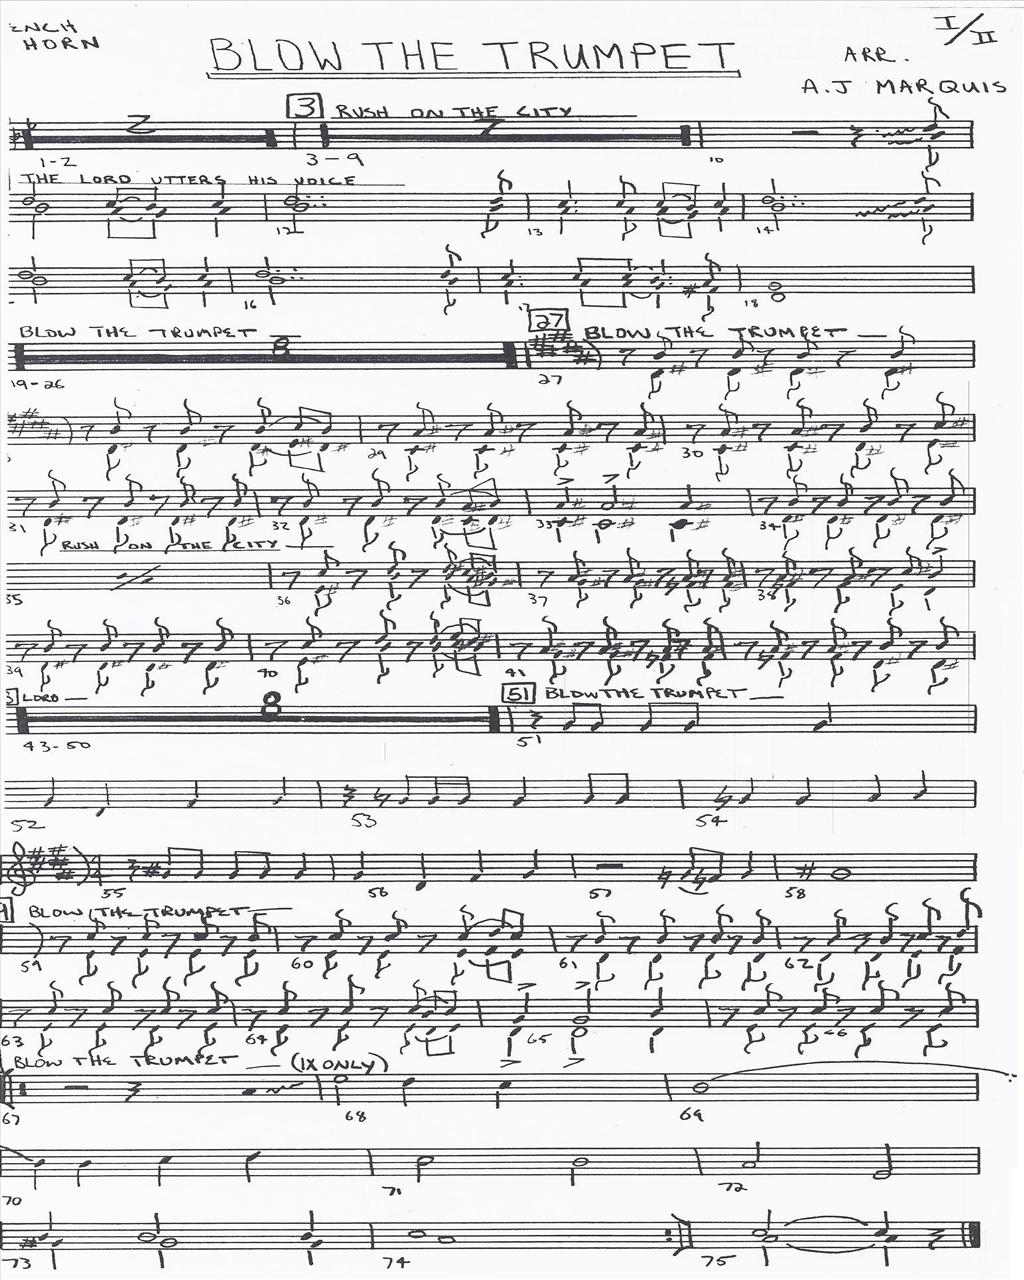 ENCH
HORN
I/II
BLOW THE TRUMPET
ARR.
A.J MARQUIS
3 RUSH ON THE CITY
2 7
1-2 3-9 10
THE LORD UTTERS HIS VOICE
12 13 14
16 17 18
BLOW THE TRUMPET 8 27 BLOW THE TRUMPET
19-26 27
29 30
31 32 33 34
RUSH ON THE CITY
35 36 37 38
39 40 41
LORD 8 51 BLOW THE TRUMPET
43-50 51
52 53 54
55 56 57 58
BLOW THE TRUMPET
59 60 61 62
63 64 65 66
BLOW THE TRUMPET (1X ONLY)
67 68 69
70 71 72
73 74 75